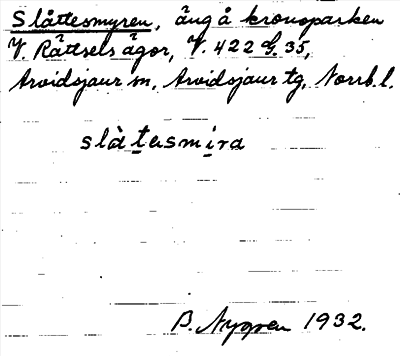 Slåttesmyren, äng å kronoparken
V. Rättsels ägor, V. 422 G. 35,
Arvidsjaur sn, Arvidsjaur tg, Norrb. l.
slàtasmira
B. Nygren 1932.